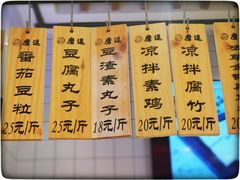 唐道
番茄豆粒
25元/斤
唐道
豆腐丸子
25元/斤
唐道
豆渣素丸子
18元/斤
唐道
凉拌素鸡
20元/斤
唐道
凉拌腐竹
20元/斤